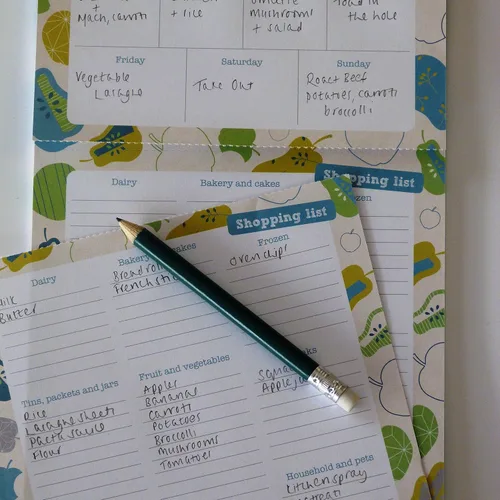 +
Mash, carrots
+ rice
omelette
mushrooms
+ salad
Toad in
the hole
Friday
Saturday
Sunday
Vegetable
Lasagne
Take Out
Roast Beef
potatoes, carrots
broccoli
Dairy
Bakery and cakes
Shopping list
Shopping list
Dairy
Frozen
Milk
Butter
Bread rolls
French stick
Oven chips
Tins, packets and jars
Fruit and vegetables
Rice
Lasagne sheets
Pasta sauce
Flour
Apples
Bananas
Carrots
Potatoes
Broccoli
Mushrooms
Tomatoes
Household and pets
Kitchen spray